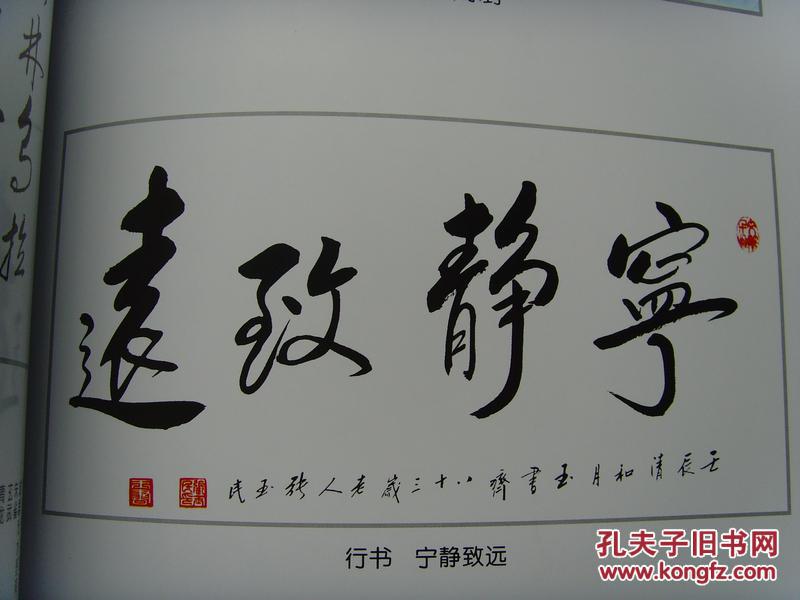 寧靜致遠
壬辰清和月玉書齋八十三歲老人張玉民
行书 宁静致远
孔夫子旧书网
www.kongfz.com